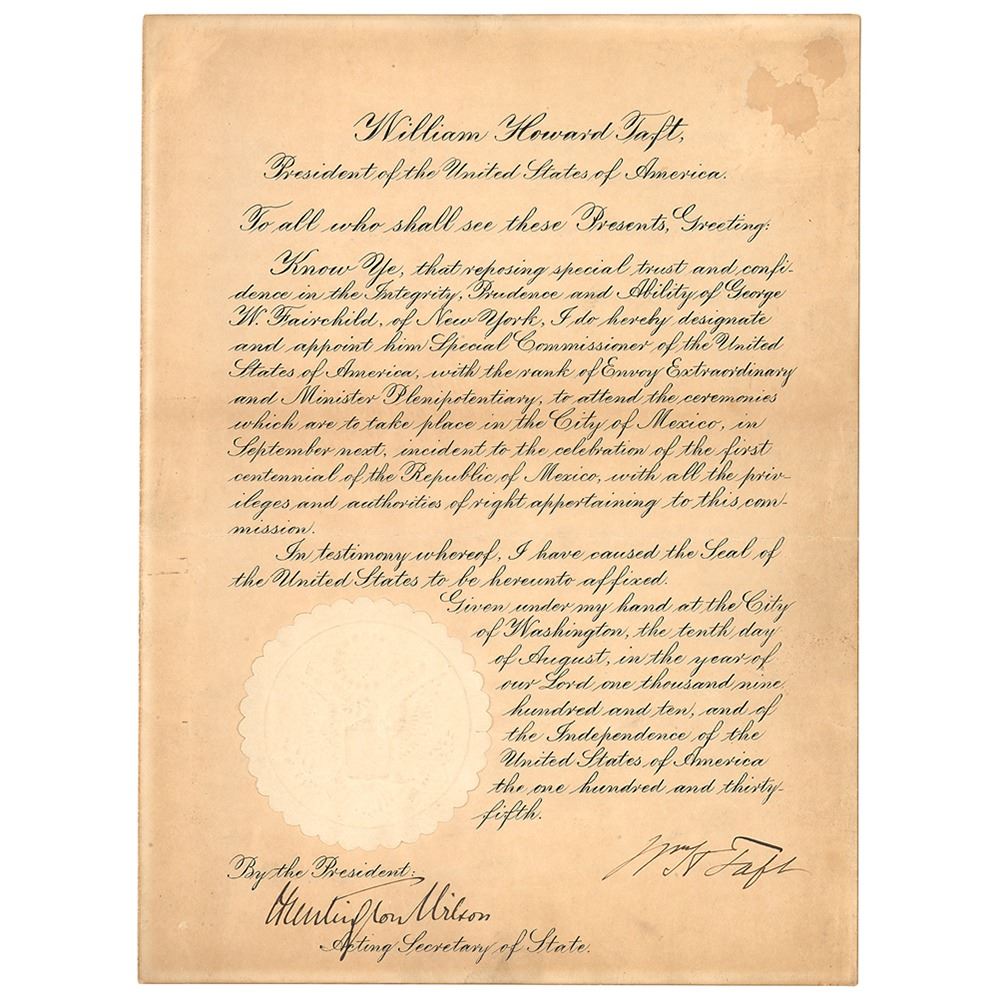 William Howard Taft,
President of the United States of America.
To all who shall see these Presents, Greeting:
Know Ye, that reposing special trust and confi-
dence in the Integrity, Prudence and Ability of George
W. Fairchild, of New York, I do hereby designate
and appoint him Special Commissioner of the United
States of America, with the rank of Envoy Extraordinary
and Minister Plenipotentiary, to attend the ceremonies
which are to take place in the City of Mexico, in
September next, incident to the celebration of the first
centennial of the Republic of Mexico, with all the priv-
ileges and authorities of right appertaining to this com-
mission.
In testimony whereof, I have caused the Seal of
the United States to be hereunto affixed.
Given under my hand at the City
of Washington, the tenth day
of August, in the year of
our Lord one thousand nine
hundred and ten, and of
the Independence of the
United States of America
the one hundred and thirty-
fifth.
Wm H Taft
By the President:
Huntington Wilson
Acting Secretary of State.